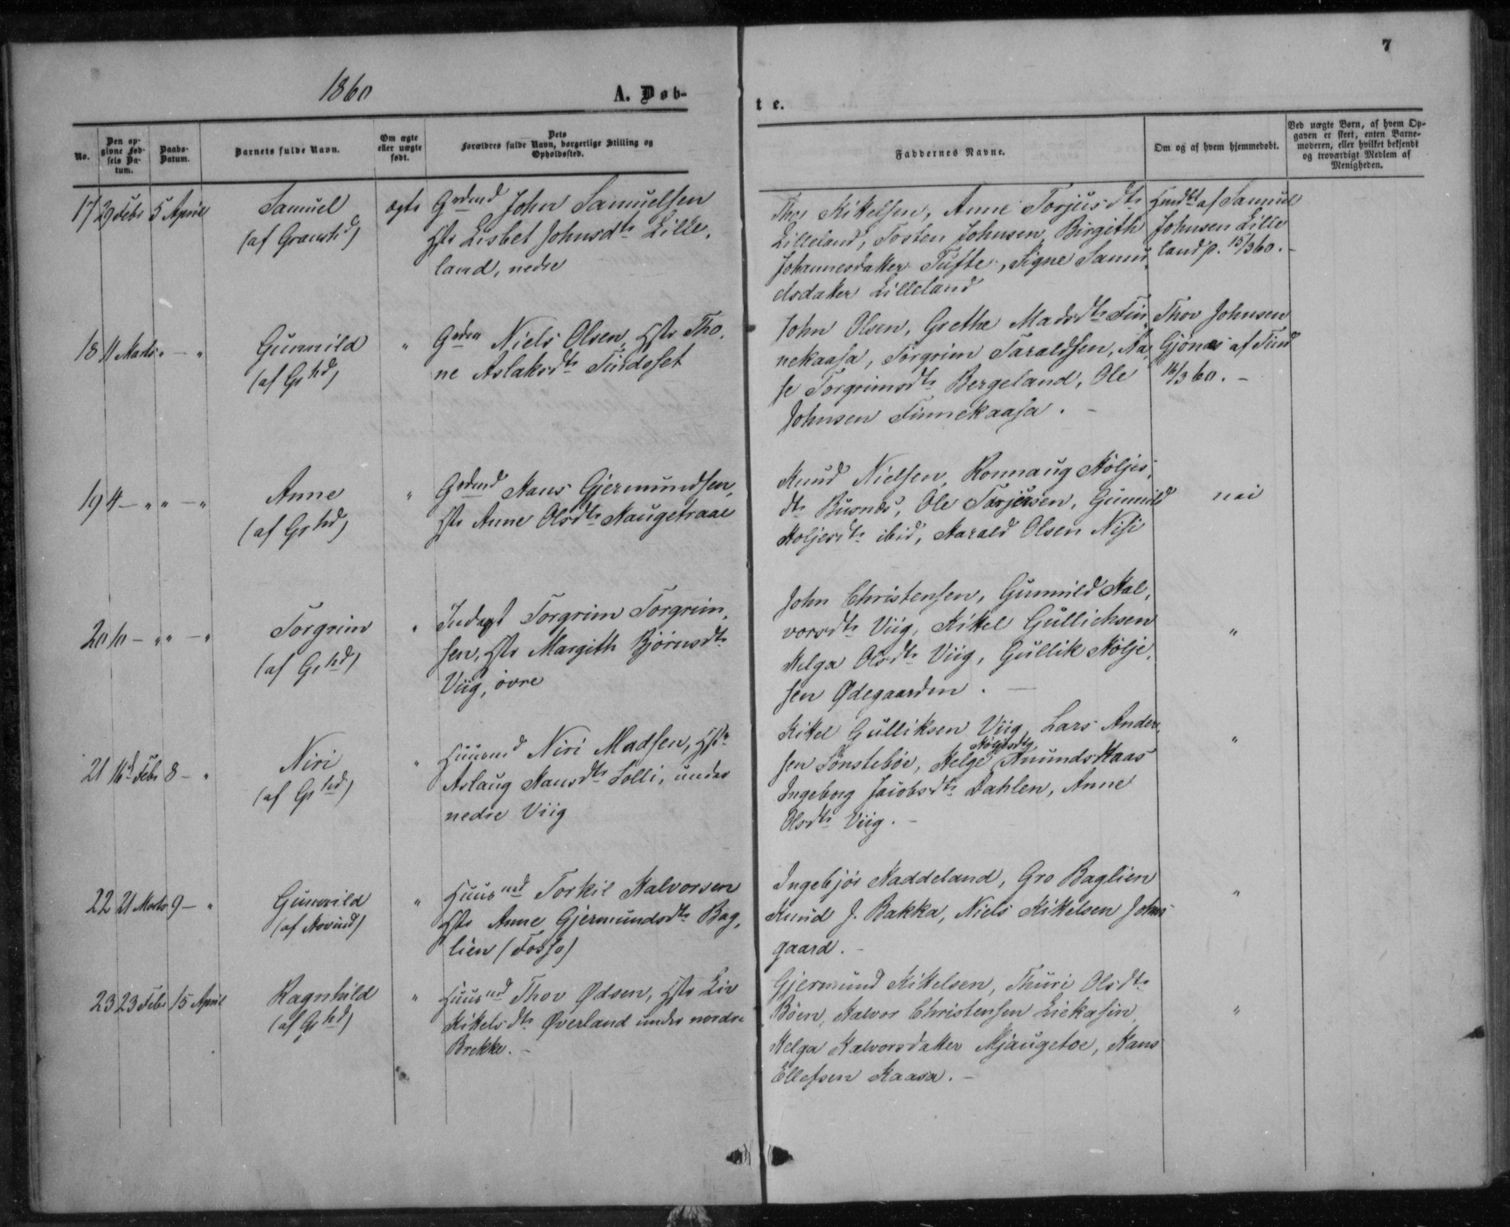 7
1860
A. Døb-
t e.
No.
Den op-
givne Fød-
sels Da-
tum.
Daabs-
Datum.
Barnets fulde Navn.
Om ægte
eller uægte
født.
Dets
Forældres fulde Navn, borgerlige Stilling og
Opholdssted.
Faddernes Navne.
Om og af hvem hjemmedøbt.
Ved uægte Børn, af hvem Op-
gaven er skeet, enten Barne-
moderen, eller hvilket bekjendt
og troværdigt Medlem af
Menigheden.
17 29 Febr 5 April
Samuel
(af Granshd)
ægte
Grdmd John Samuelsen
Hst Lisbet Johnsdtr Lille-
land, nedre
Kittelsen, Anne Torjusdtr
Lilleland, Tosten Johnsen, Birgith
Johannesdatter Tufte, Signe Samu-
elsdatter Lilleland
af Samuel
Johnsen Lille
land p. 15/3 60. -
18 11 Marts " — "
Gunnild
(af Grhd)
"
Niels Olsen, Hst Tho-
ne Aslaksdtr Turdoset
John Olsen, Grethe Madsdtr Tin-
nekaasa, Torgrim Taraldsen, Aa-
se Torgrimsdtr Bergeland, Ole
Johnsen Tinnekaasa. -
Thor Johnsen
Gjønæs af Tind
16/3 60. -
19 4 — " " — "
Anne
(af Grhd)
"
Grdmd Hans Gjermundsen,
Hst Anne Olsdtr Haugetraae
Knud Nielsen, Ronnaug Høljes-
dtr Buvnæs, Ole Torjersen, Gunnild
Holjesdtr ibid, Harald Olsen Nisi
nei
20 10 — " " — "
Torgrim
(af Grhd)
"
Inderst Torgrim Torgrim-
sen, Hst Margith Bjørnsdtr
Viig, øvre
John Christensen, Gunnild Hal-
vorsdtr Viig, Kittel Gullicksen
Helga Olsdtr Viig, Gullik Hølje-
sen Ødegaarden. —
"
21 16d Febr 8 — "
Niri
(af Grhd)
"
Huusmd Niri Madsen, Hstr
Aslaug Hansdtr Lolli, under
nedre Viig
Kittel Gulliksen Viig, Lars Ander-
sen Sønstebøe, Helge Høljesdtr Anunds Haas
Ingeborg Jacobsdtr Dahlen, Anne
Olsdtr Viig. -
"
22 21 Marts 9 — "
Gunvild
(af Hovind)
"
Huusmd Torkil Halvorsen
Hst Anne Gjermundsdtr Bag-
lien (Fosso)
Ingebjør Haddeland, Gro Baglien
Knud J. Bakka, Niels Kittelsen Johns-
gaard. -
"
23 23 Febr 15 April
Ragnhild
(af Grhd)
"
Huusmd Thov Ødsen, Hst Liv
Kittelsdtr Øverland under nordre
Brekke. -
Gjermund Kittelsen, Thuri Olsdtr
Bøen, Halvor Christensen Liekasin,
Helga Halvorsdatter Mjaugetoe, Hans
Ellefsen Kaasa. -
"